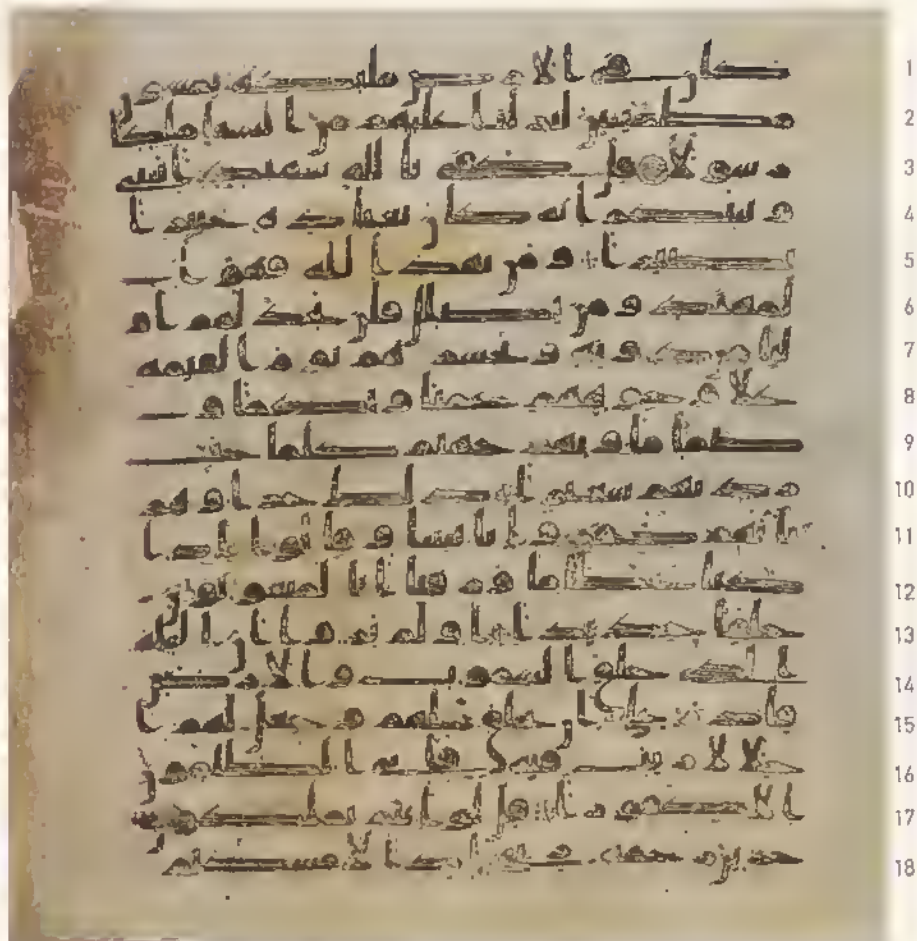 1 كان في الارض مليكه يمشون
2 مطمينين لنزلنا عليهم من السما ملكا
3 رسولا قل كفى بالله شهيدا بيني
4 وبينكم انه كان بعباده خبيرا
5 بصيرا ومن يهد الله فهو ا
6 لمهتد ومن يضلل فلن تجد لهم او
7 ليا من دونه ونحشرهم يوم القيمه
8 على وجوههم عميا وبكما و
9 صما ماويهم جهنم كلما خبت
10 زدنهم سعيرا ذلك جزاوهم
11 بانهم كفروا بايتنا وقالوا اذا
12 كنا عظما ورفتا انا لمبعوثون
13 خلقا جديدا اولم يروا ان الله
14 الذي خلق السموت والارض
15 قادر على ان يخلق مثلهم وجعل لهم ا
16 جلا لا ريب فيه فابى الظلمون
17 الا كفورا قل لو انتم تملكون
18 خزاين رحمه ربي اذا لامسكتم